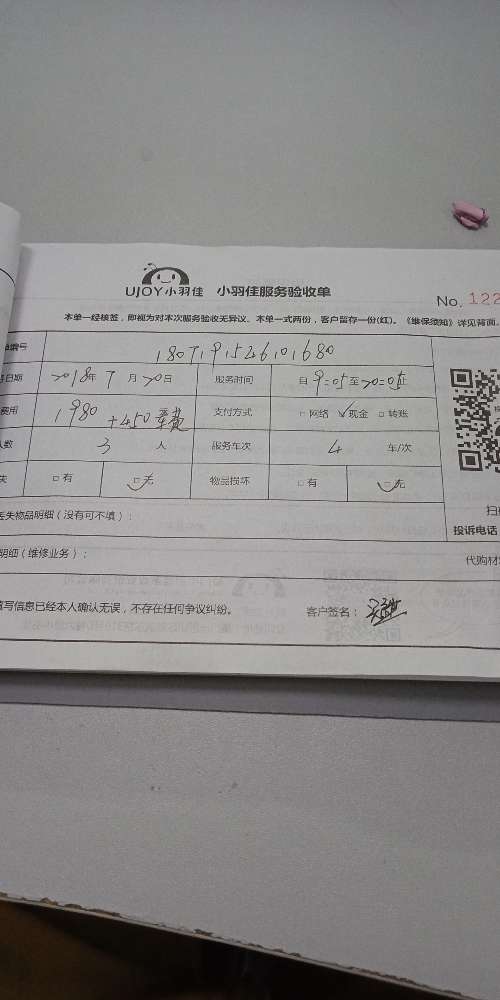 UJOY小羽佳 小羽佳服务验收单
No. 122
本单一经核签，即视为对本次服务验收无异议、本单一式两份，客户留存一份(红)。《维保须知》详见背面
编号 1807191526101680
日期 2018年 7 月 20 日 服务时间 自 9:05 至 20:05
费用 1980 +450 支付方式 □ 网络 ✓现金 □ 转账
人数 3 人 服务车次 4 车/次
失 □ 有 □ 无 物品损坏 □ 有 □ 无
丢失物品明细（没有可不填）：
投诉电话
明细（维修业务）：
代购材
填写信息已经本人确认无误，不存在任何争议纠纷。 客户签名：